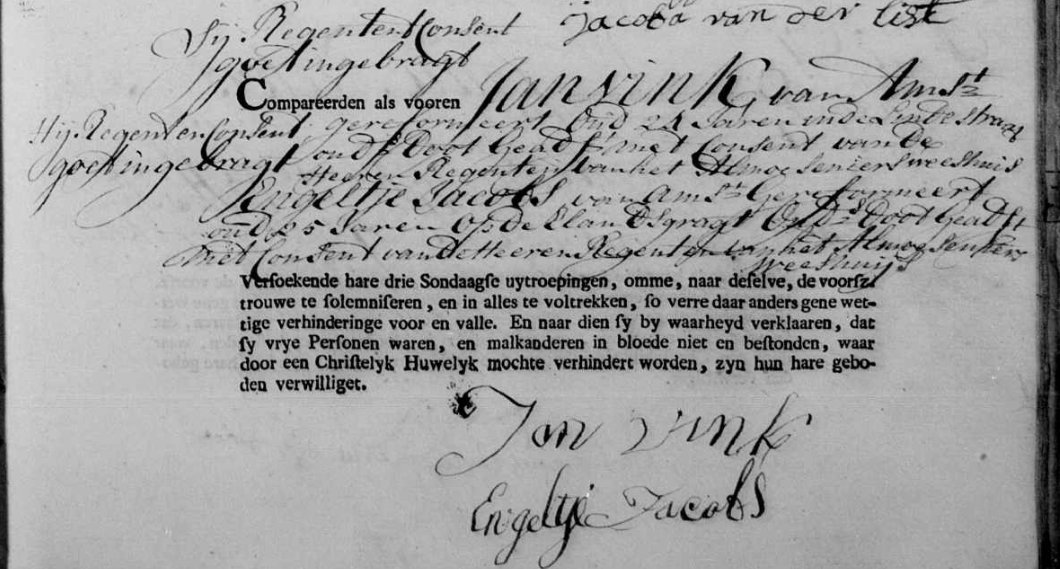 Jacoba van der List
Sij Regenten Consent
goet ingebragt
Compareerden als vooren Jan Vink, van Amst:
Hij Regenten Consent gereformeert oud 24 Jaren in de Lindestraat
goet ingebragt oud:s doot geadst: met Consent van de
Heeren Regenten van het Almoeseniers weeshuis
Engeltje Jacobs, van Amst: Gereformeert
oud 25 Jaren op de Elandsgragt oud:s doot geadst
met Consent van de Heeren Regenten van het Almoeseniers
weeshuijs
Versoekende hare drie Sondaagse uytroepingen, omme, naar deselve, de voorsz.
trouwe te solemniseren, en in alles te voltrekken, so verre daar anders gene wet-
tige verhinderinge voor en valle. En naar dien sy by waarheyd verklaaren, dat
sy vrye Personen waren, en malkanderen in bloede niet en bestonden, waar
door een Christelyk Huwelyk mochte verhindert worden, zyn hun hare gebo-
den verwilliget.
Jan Vink
Engeltje Jacobs